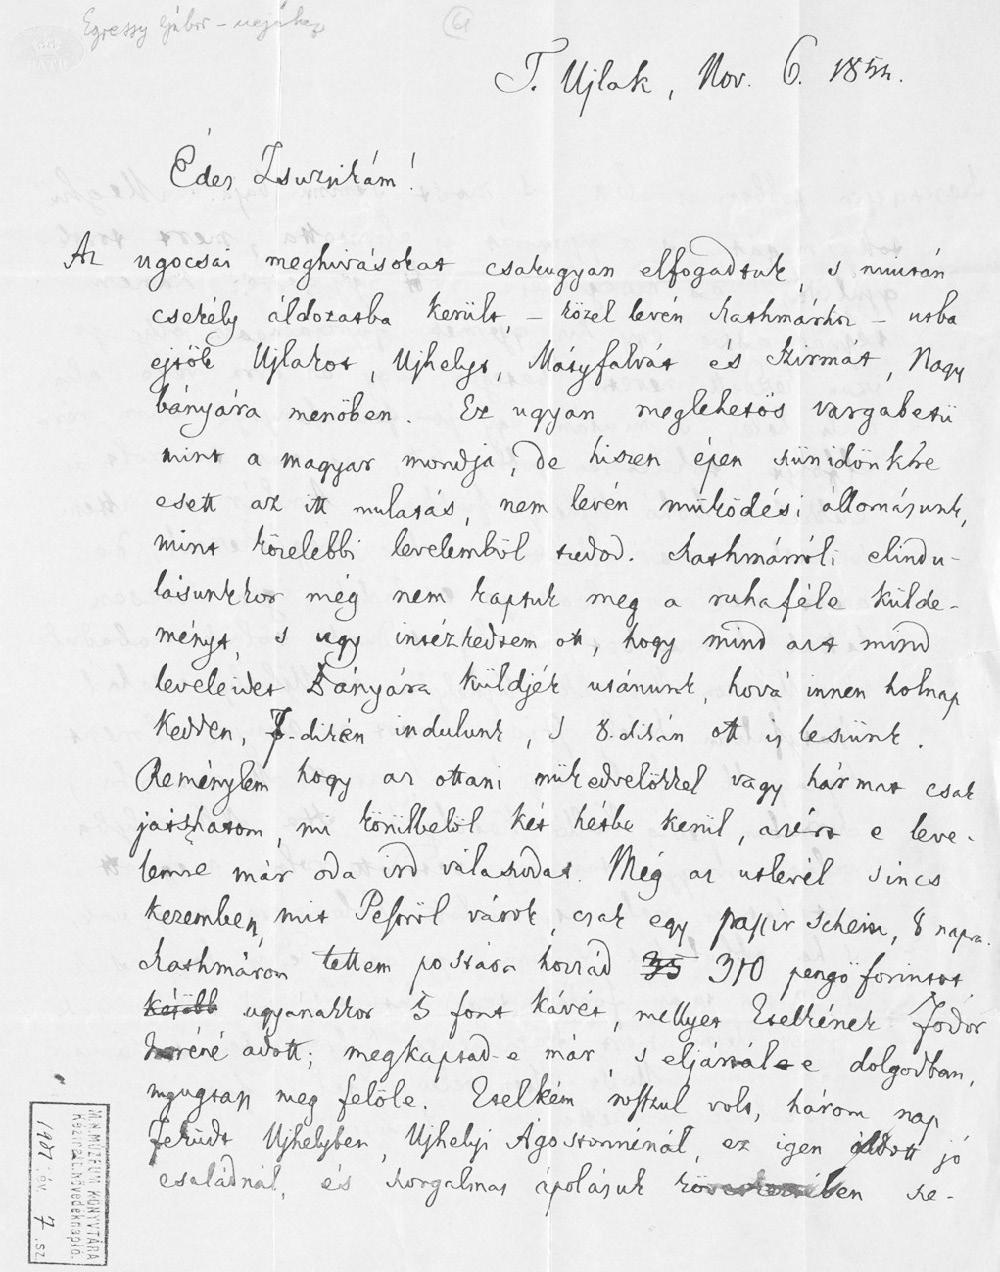 Egressy Gábor – nejéhez
61
T. Ujlak, Nov. 6. 1854.
Édes Zsuzsikám!
Az ugocsai meghivásokat csakugyan elfogadtuk, s miután
csekély áldozatba került, – közel levén Szathmárhoz – utba
ejtök Ujlakot, Ujhelyt, Mátyfalvát és Szirmát, Nagy
bányára menőben. Ez ugyan meglehetős vargabetü
mint a magyar mondja, de hiszen épen szünidőnkbe
esett az itt mulatás, nem levén müködési állomásunk,
mint közelebbi levelemből tudod. Szathmárróli elindu-
lásunkkor még nem kaptuk meg a ruhaféle külde-
ményt, s ugy intézkedtem ott, hogy mind azt mind
leveleidet Bányára küldjék utánunk, hová innen holnap
kedden, 7.-dikén indulunk, s 8.dikán ott is leszünk.
Reménylem hogy az ottani mükedvelőkkel vagy hármat csak
játszhatom, mi körülbelöl két hétbe kerül, azért e leve-
lemre már oda ird válaszodat. Még az utlevél sincs
kezemben, mit Pestről várok, csak egy passir schein, 8 napra.
Szathmáron tettem postára hozzád 35 350 pengő forintot
később ugyanakkor 5 font kávét, mellyet Etelkének Fodor
adott; megkaptad-e már s eljártál-e dolgodban,
nyugtass meg felőle. Etelkém rosszul volt, három nap
feküdt Ujhelyben, Ujhelyi Ágostonnénál, ez igen áldott jó
családnál, és szorgalmas ápolásuk következtében sze-
M.N. MUZEUM KÖNYVTÁRA
Kézirat. Növedéknapló.
1907 év 7. sz.